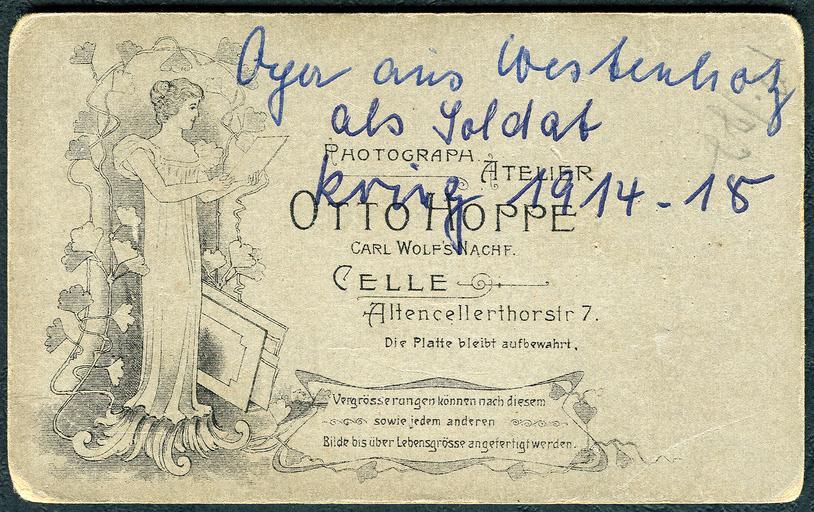 Oger aus Westenholz
als Soldat
PHOTOGRAPH.
ATELIER
krieg 1914-18
OTTO HOPPE
CARL WOLF'S NACHF.
CELLE
Altencellerthorstr 7.
Die Platte bleibt aufbewahrt.
Vergrösserungen können nach diesem
sowie jedem anderen
Bilde bis über Lebensgrösse angefertigt werden.